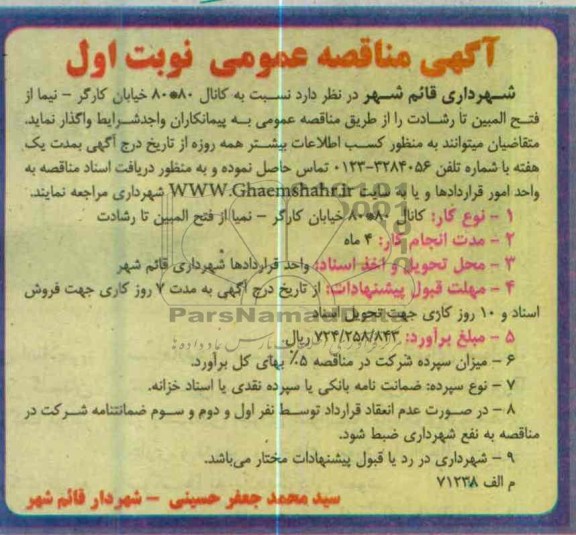 آگهی مناقصه عمومی نوبت اول
شهرداری قائم شهر در نظر دارد نسبت به کانال ۸۰*۸۰ خیابان کارگر – نیما از
فتح المبین تا رشادت را از طریق مناقصه عمومی به پیمانکاران واجدشرایط واگذار نماید.
متقاضیان میتوانند به منظور کسب اطلاعات بیشتر همه روزه از تاریخ درج آگهی بمدت یک
هفته با شماره تلفن ۳۲۸۴۰۵۶-۰۱۲۳ تماس حاصل نموده و به منظور دریافت اسناد مناقصه به
واحد امور قراردادها و یا به سایت WWW.Ghaemshahr.ir شهرداری مراجعه نمایند.
۱ – نوع کار: کانال ۸۰*۸۰ خیابان کارگر – نمیا از فتح المبین تا رشادت
۲ – مدت انجام کار: ۴ ماه
۳ – محل تحویل و اخذ اسناد: واحد قراردادها شهرداری قائم شهر
۴ – مهلت قبول پیشنهادات: از تاریخ درج آگهی به مدت ۷ روز کاری جهت فروش
اسناد و ۱۰ روز کاری جهت تحویل اسناد
ParsNamadData
۵ – مبلغ برآورد: ۷۲۴/۲۵۸/۸۴۳ ریال
۶ – میزان سپرده شرکت در مناقصه ۵٪ بهای کل برآورد.
۷ – نوع سپرده: ضمانت نامه بانکی یا سپرده نقدی یا اسناد خزانه.
۸ – در صورت عدم انعقاد قرارداد توسط نفر اول و دوم و سوم ضمانتنامه شرکت در
مناقصه به نفع شهرداری ضبط شود.
۹ – شهرداری در رد یا قبول پیشنهادات مختار می‌باشد.
م الف ۷۱۲۳۸
سید محمد جعفر حسینی – شهردار قائم شهر